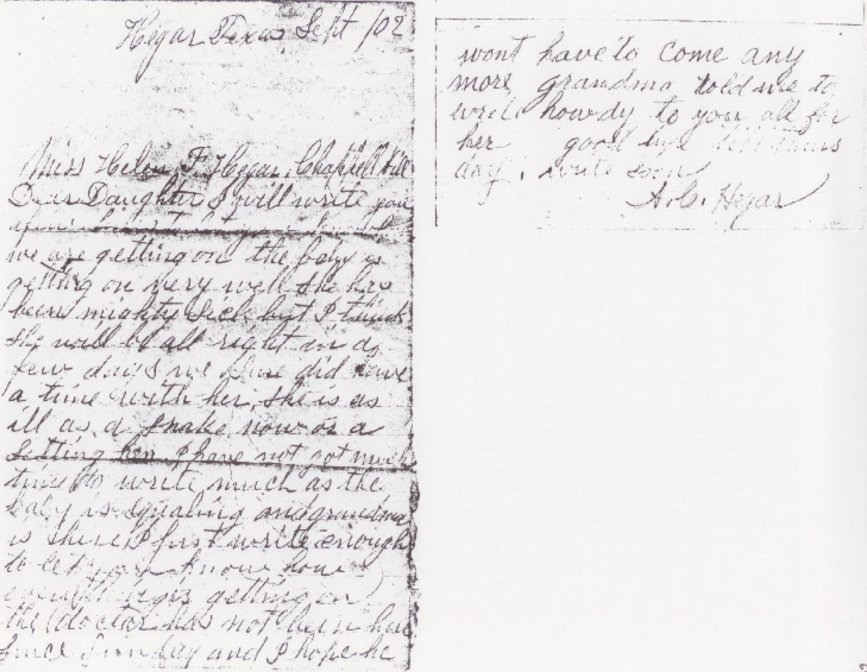 Hegar Texas Sept /02
Miss Helen F. Hegar, Chappell Hill
Dear Daughter I will write you
we are getting on the baby is
getting on very well she has
been mighty sick but I think
she will be all right in a
few days we sure did have
a time with her, she is as
ill as a snake now or a
setting hen I have not got much
time to write much as the
baby is squealing and grandma
is here I just write enough
to let you know how
everything is getting on
the doctor has not been here
since Sunday and I hope he
wont have to come any
more, grandma told me to
write howdy to you all for
her good bye till
day, write soon
A. C. Hegar